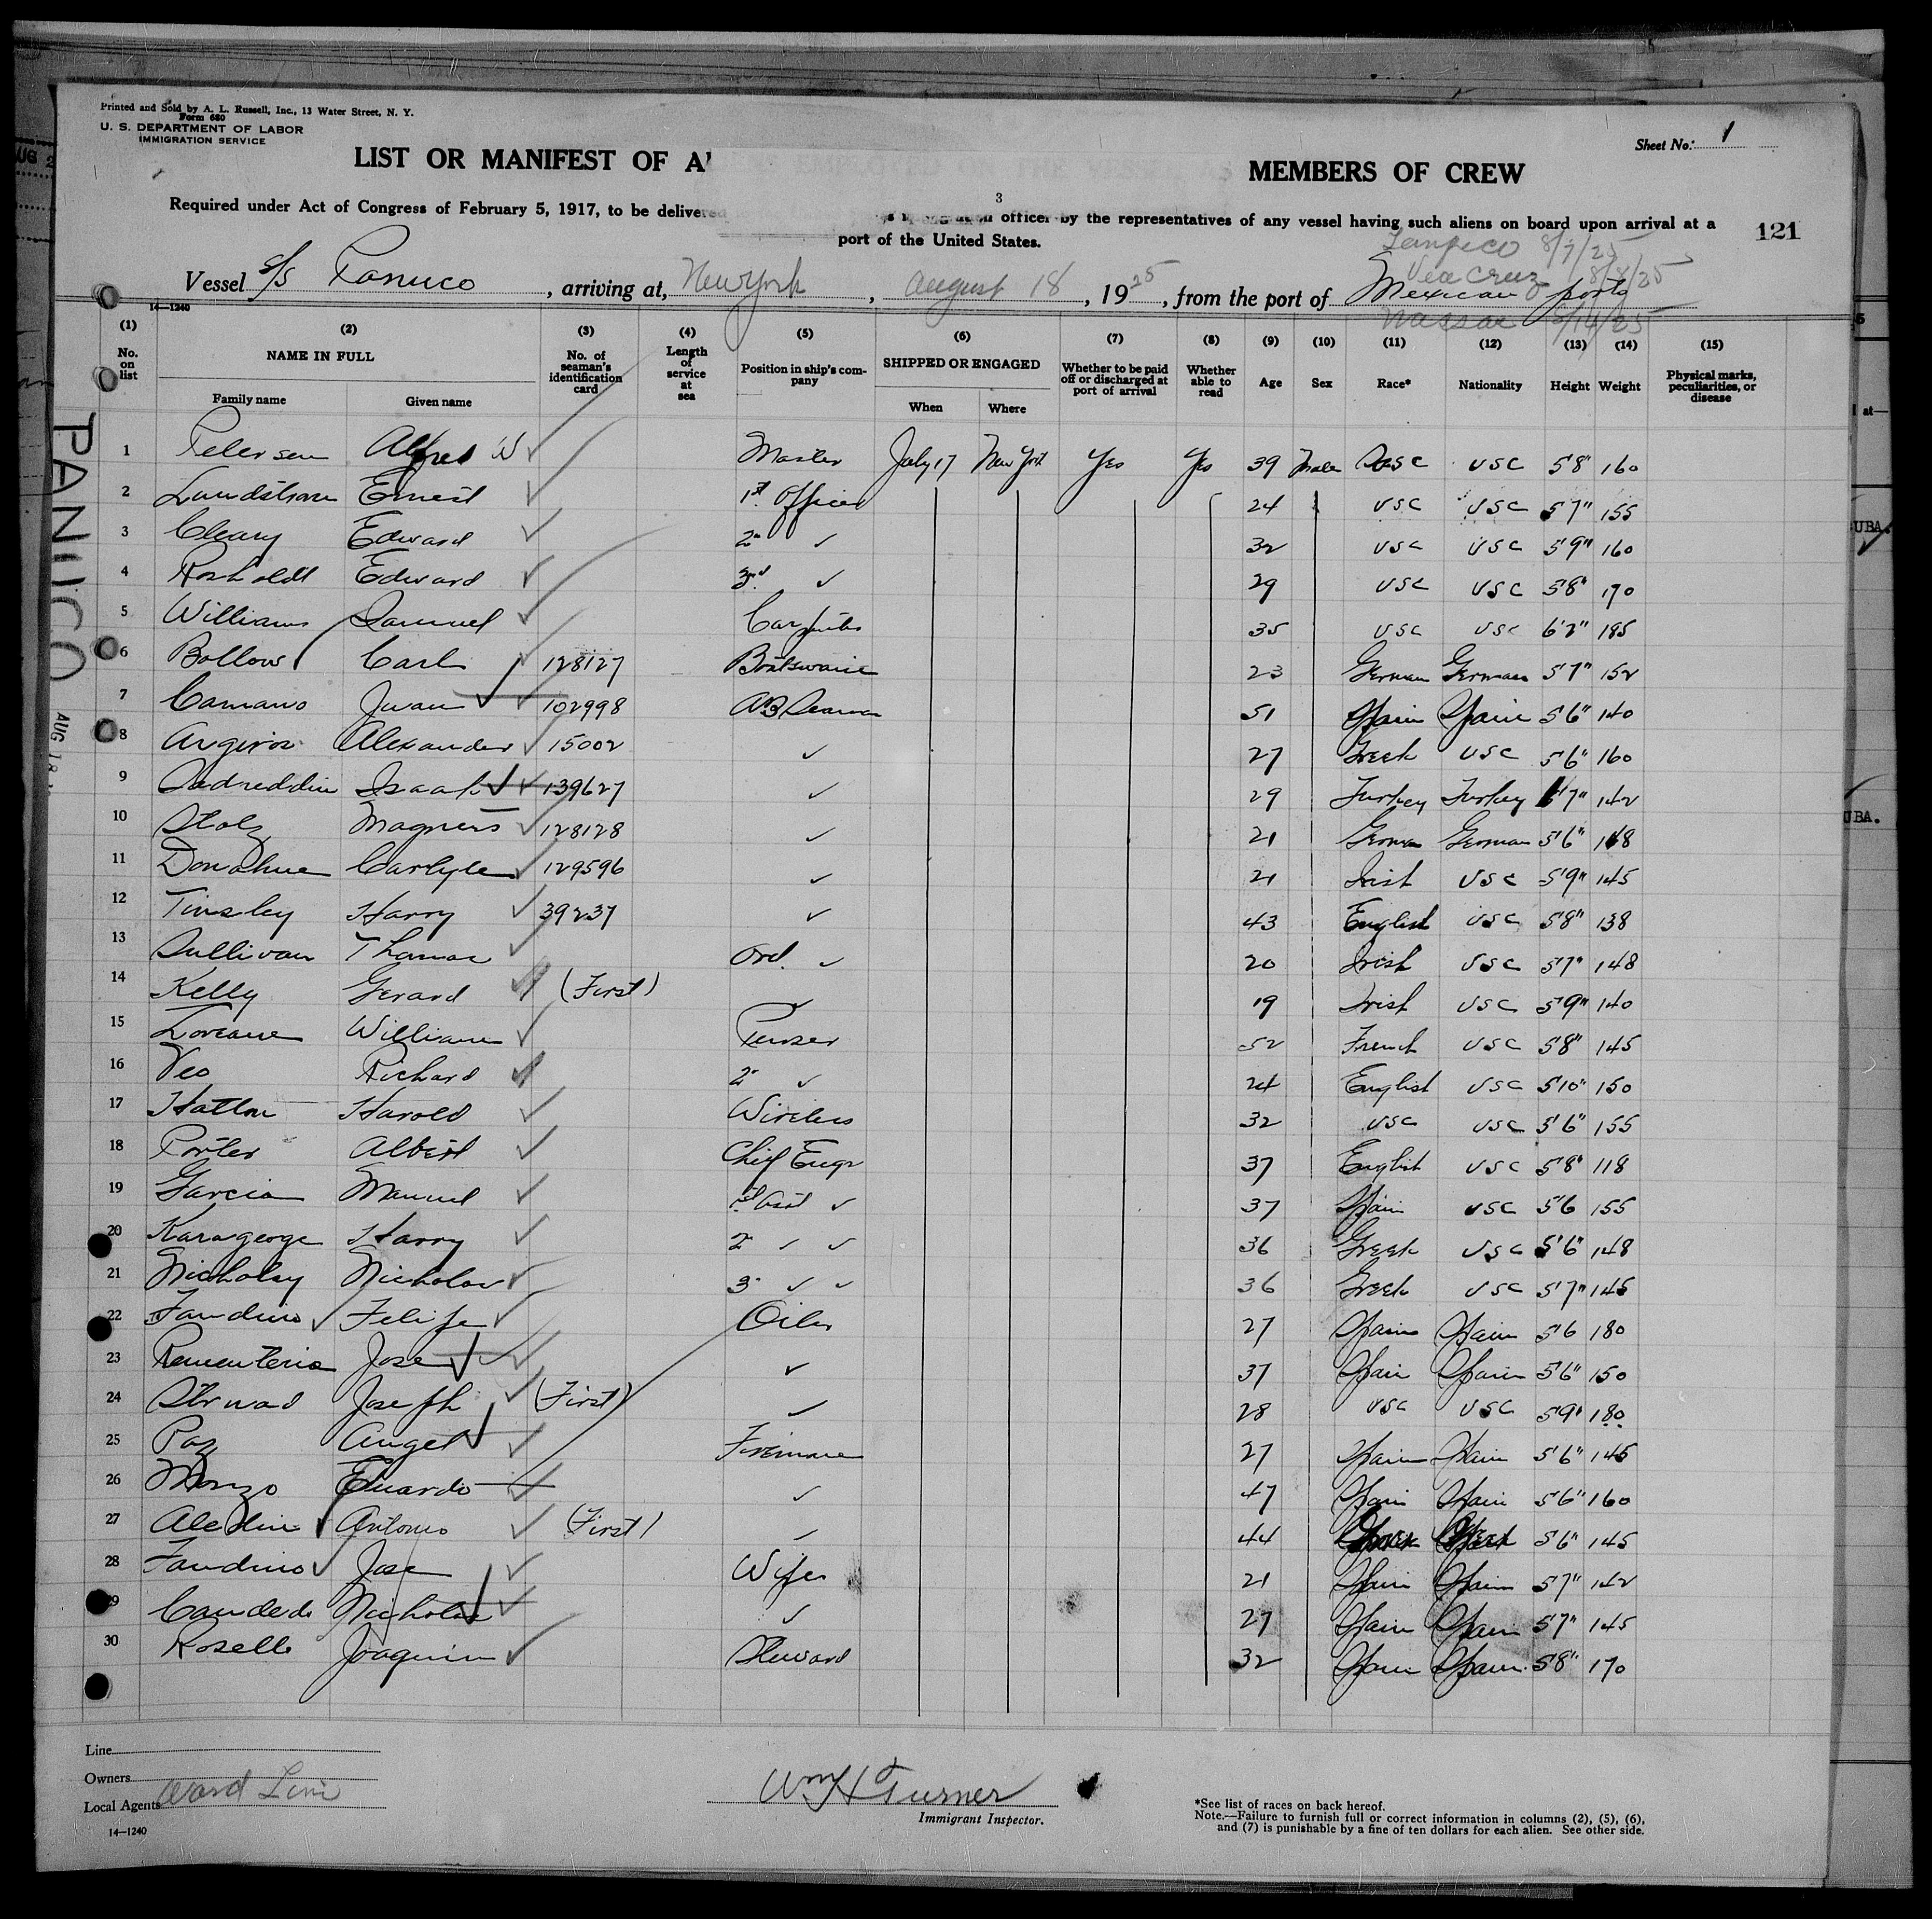 Printed and Sold by A. L. Russell, Inc., 13 Water Street, N. Y.
Form 680
U. S. DEPARTMENT OF LABOR
IMMIGRATION SERVICE
Sheet No. 1
LIST OR MANIFEST OF MEMBERS OF CREW
Required under Act of Congress of February 5, 1917, to be officer by the representatives of any vessel having such aliens on board upon arrival at a
port of the United States.
121
Tampico 8/7/25
Vera Cruz 8/8/25
Vessel S/S Panuco, arriving at, New York, August 18, 1925, from the port of Mexican ports
Nassau 8/14/25
14-1240
(1) (2) (3) (4) (5) (6) (7) (8) (9) (10) (11) (12) (13) (14) (15)
No. on list NAME IN FULL Family name Given name No. of seaman's identification card Length of service at sea Position in ship's company SHIPPED OR ENGAGED When Where Whether to be paid off or discharged at port of arrival Whether able to read Age Sex Race* Nationality Height Weight Physical marks, peculiarities, or disease
PANUCO AUG 18
1 Petersen Alfred W Master July 17 New York Yes Yes 39 Male USC USC 5'8" 160
2 Lundstrom Ernest 1st Officer 24 USC USC 5'7" 155
3 Cleary Edward 2" ✓ 32 USC USC 5'9" 160
4 Rosholdt Edward 3rd ✓ 29 USC USC 5'8" 170
5 Williams Samuel Carpenter 35 USC USC 6'2" 185
6 Bollow Carl 128127 Boatswain 23 German German 5'7" 152
7 Camano Juan 102998 AB Seaman 51 Spain Spain 5'6" 140
8 Argiros Alexander 15002 ✓ 27 Greek USC 5'6" 160
9 Sadreddin Isaak 139627 ✓ 29 Turkey Turkey 5'7" 142
10 Stolz Magnus 128128 ✓ 21 German German 5'6" 148
11 Donahue Carlyle 129596 ✓ 21 Irish USC 5'9" 145
12 Tinsley Harry 39237 ✓ 43 English USC 5'8" 138
13 Sullivan Thomas Ord. ✓ 20 Irish USC 5'7" 148
14 Kelly Gerard (First) ✓ 19 Irish USC 5'9" 140
15 Loreane William Purser 52 French USC 5'8" 145
16 Veo Richard 2" ✓ 24 English USC 5'10" 150
17 Hatton Harold Wireless 32 USC USC 5'6" 155
18 Porter Albert Chief Engr 37 English USC 5'8" 118
19 Garcia Manuel 1st Asst ✓ 37 Spain USC 5'6 155
20 Karageorge Harry 2" ✓ ✓ 36 Greek USC 5'6" 148
21 Nicholay Nicholas 3" ✓ ✓ 36 Greek USC 5'7" 145
22 Fandino Felipe Oiler 27 Spain Spain 5'6 180
23 Rementeria Jose ✓ 37 Spain Spain 5'6" 150
24 Joseph (First) ✓ 28 USC USC 5'9" 180
25 Paz Angel Fireman 27 Spain Spain 5'6" 145
26 Eduardo ✓ 47 Spain Spain 5'6" 160
27 Antonio (First) ✓ 44 5'6" 145
28 Fandino Jose Wiper 21 Spain Spain 5'7" 142
29 Nicholas ✓ 27 Spain Spain 5'7" 145
30 Rosello Joaquin Steward 32 Spain Spain 5'8" 170
Line
Owners
Local Agents Ward Line
14-1240
Wm H Turner
Immigrant Inspector.
*See list of races on back hereof.
Note.—Failure to furnish full or correct information in columns (2), (5), (6),
and (7) is punishable by a fine of ten dollars for each alien. See other side.